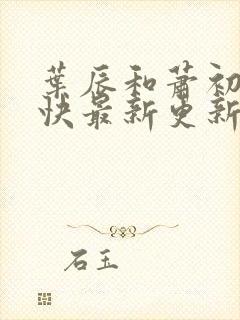 葉辰和蕭初
快最新更新
石玉